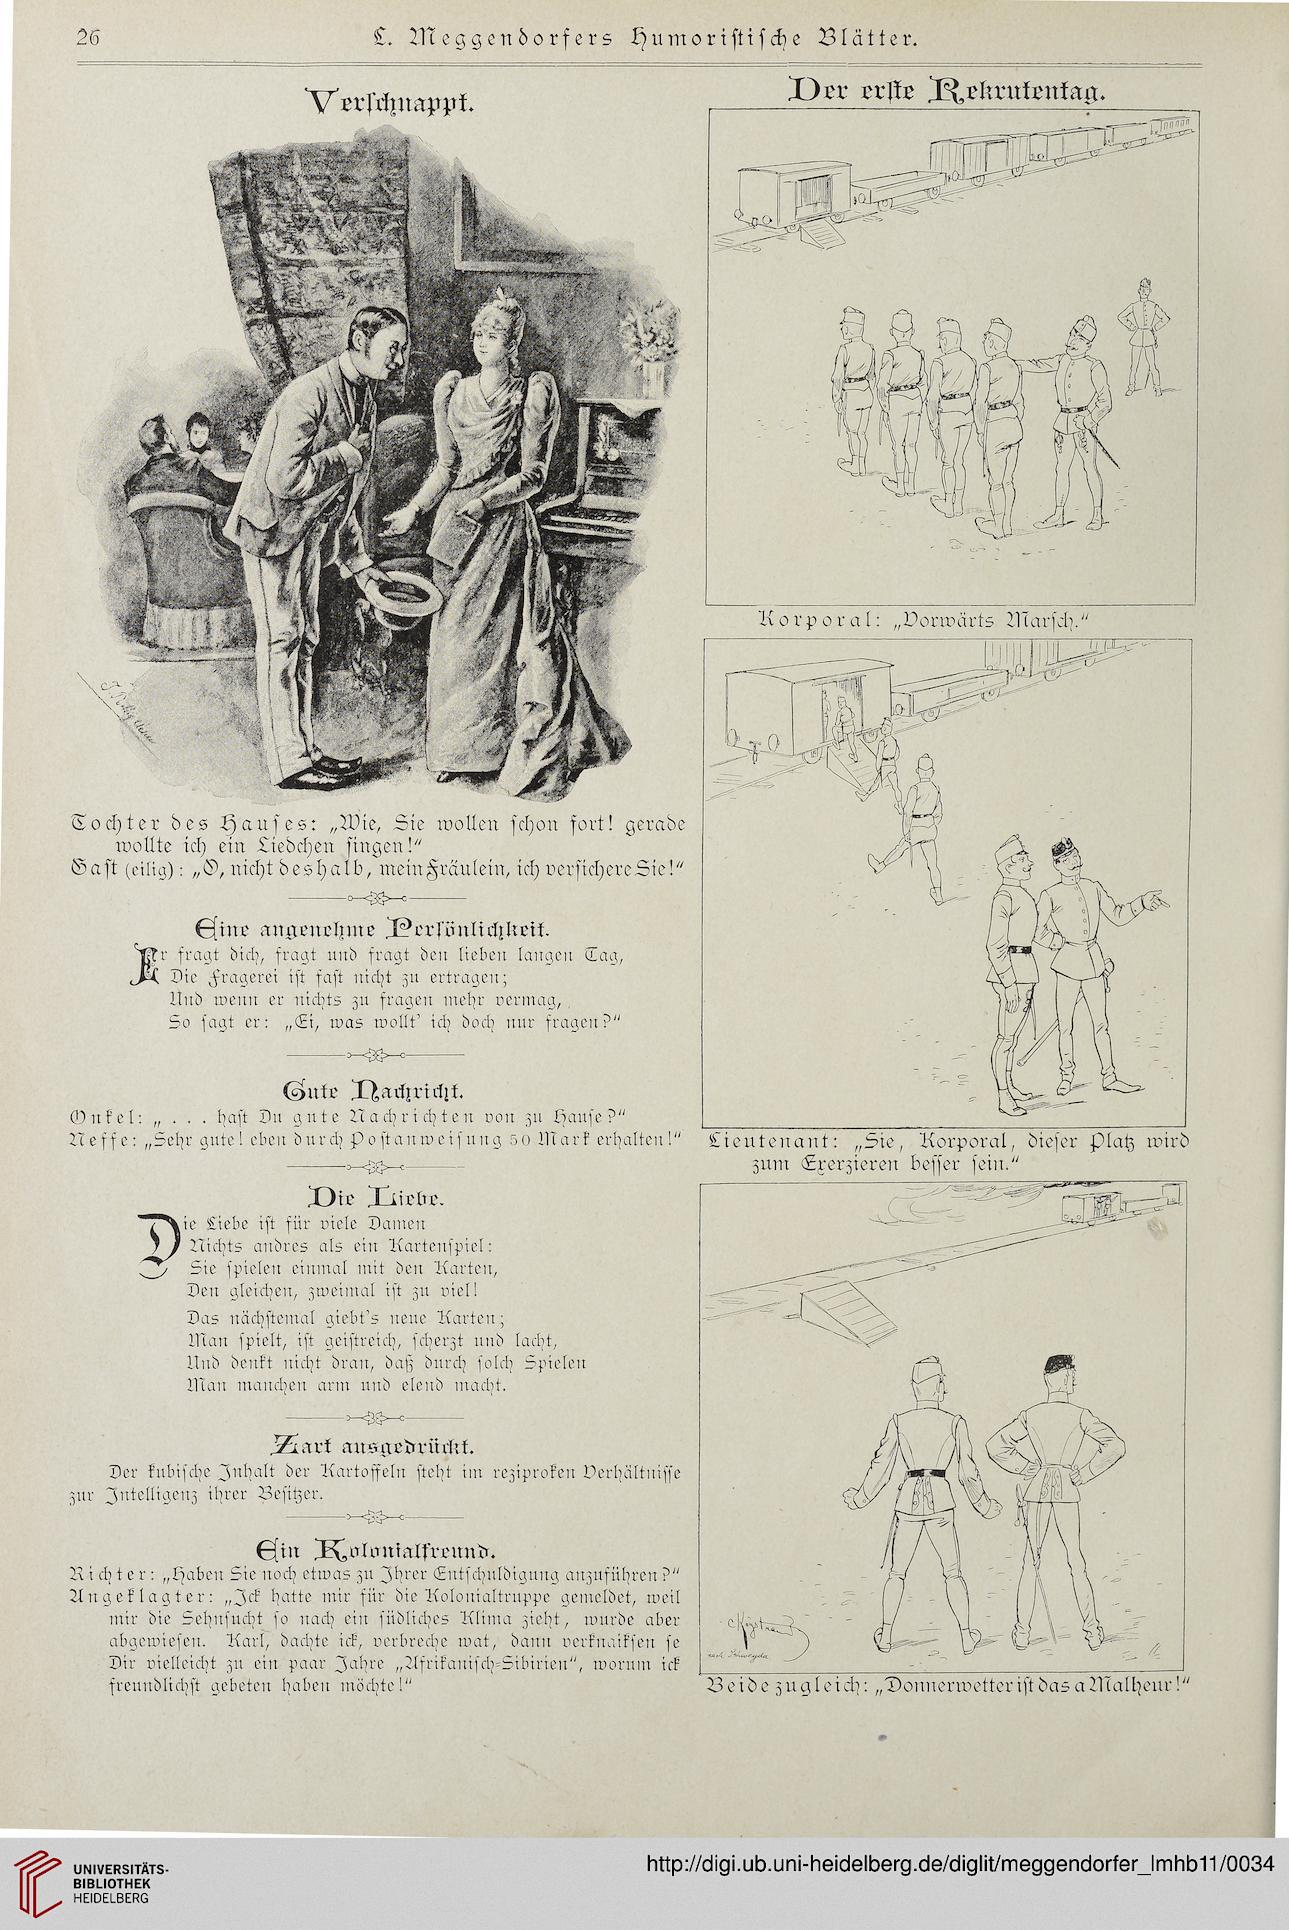 26
L. Meggendorfers Humoristische Blätter.
Verschnappt.
Tochter des Hauses: „Wie, Sie wollen schon fort! gerade
wollte ich ein Liedchen singen!"
Gast (eilig): „O, nicht deshalb, mein Fräulein, ich versichere Sie!"
Eine angenehme Persönlichkeit.
Er fragt dich, fragt und fragt den lieben langen Tag,
Die Fragerei ist fast nicht zu ertragen;
Und wenn er nichts zu fragen mehr vermag,
So sagt er: „Ei, was wollt' ich doch nur fragen?"
Gute Nachricht.
Onkel: „ . . . hast Du gute Nachrichten von zu Hause?"
Neffe: „Sehr gute! eben durch Postanweisung 50 Mark erhalten!"
Die Liebe.
Die Liebe ist für viele Damen
Nichts andres als ein Kartenspiel:
Sie spielen einmal mit den Karten,
Den gleichen, zweimal ist zu viel!
Das nächstemal giebt's neue Karten;
Man spielt, ist geistreich, scherzt und lacht,
Und denkt nicht dran, daß durch solch Spielen
Man manchen arm und elend macht.
Zart ausgedrückt.
Der kubische Inhalt der Kartoffeln steht im reziproken Verhältnisse
zur Intelligenz ihrer Besitzer.
Ein Kolonialfreund.
Richter: „Haben Sie noch etwas zu Ihrer Entschuldigung anzuführen?"
Angeklagter: „Ick hatte mir für die Kolonialtruppe gemeldet, weil
mir die Sehnsucht so nach ein südliches Klima zieht, wurde aber
abgewiesen. Karl, dachte ick, verbreche wat, dann verknaiksen se
Dir vielleicht zu ein paar Jahre „Afrikanisch-Sibirien", worum ick
freundlichst gebeten haben möchte!"
Der erste Rekrutentag.
Korporal: „Vorwärts Marsch."
Lieutenant: „Sie, Korporal, dieser Platz wird
zum Exerzieren besser sein."
Beide zugleich: „Donnerwetter ist das a Malheur!"
UNIVERSITÄTS-
BIBLIOTHEK
HEIDELBERG
http://digi.ub.uni-heidelberg.de/diglit/meggendorfer_lmhb11/0034